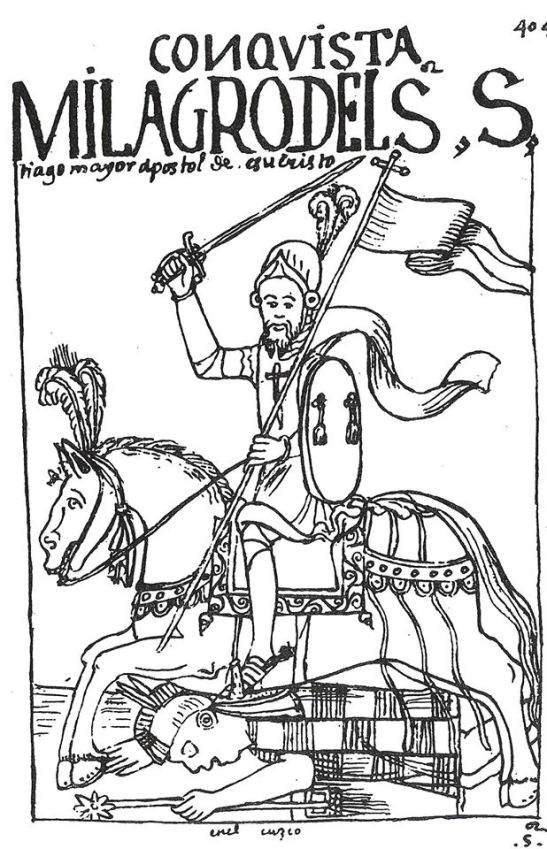 404
CONQVISTA
MILAGRO DEL S, S,
tiago mayor apostol de. esucristo
enel cuzco
.S.